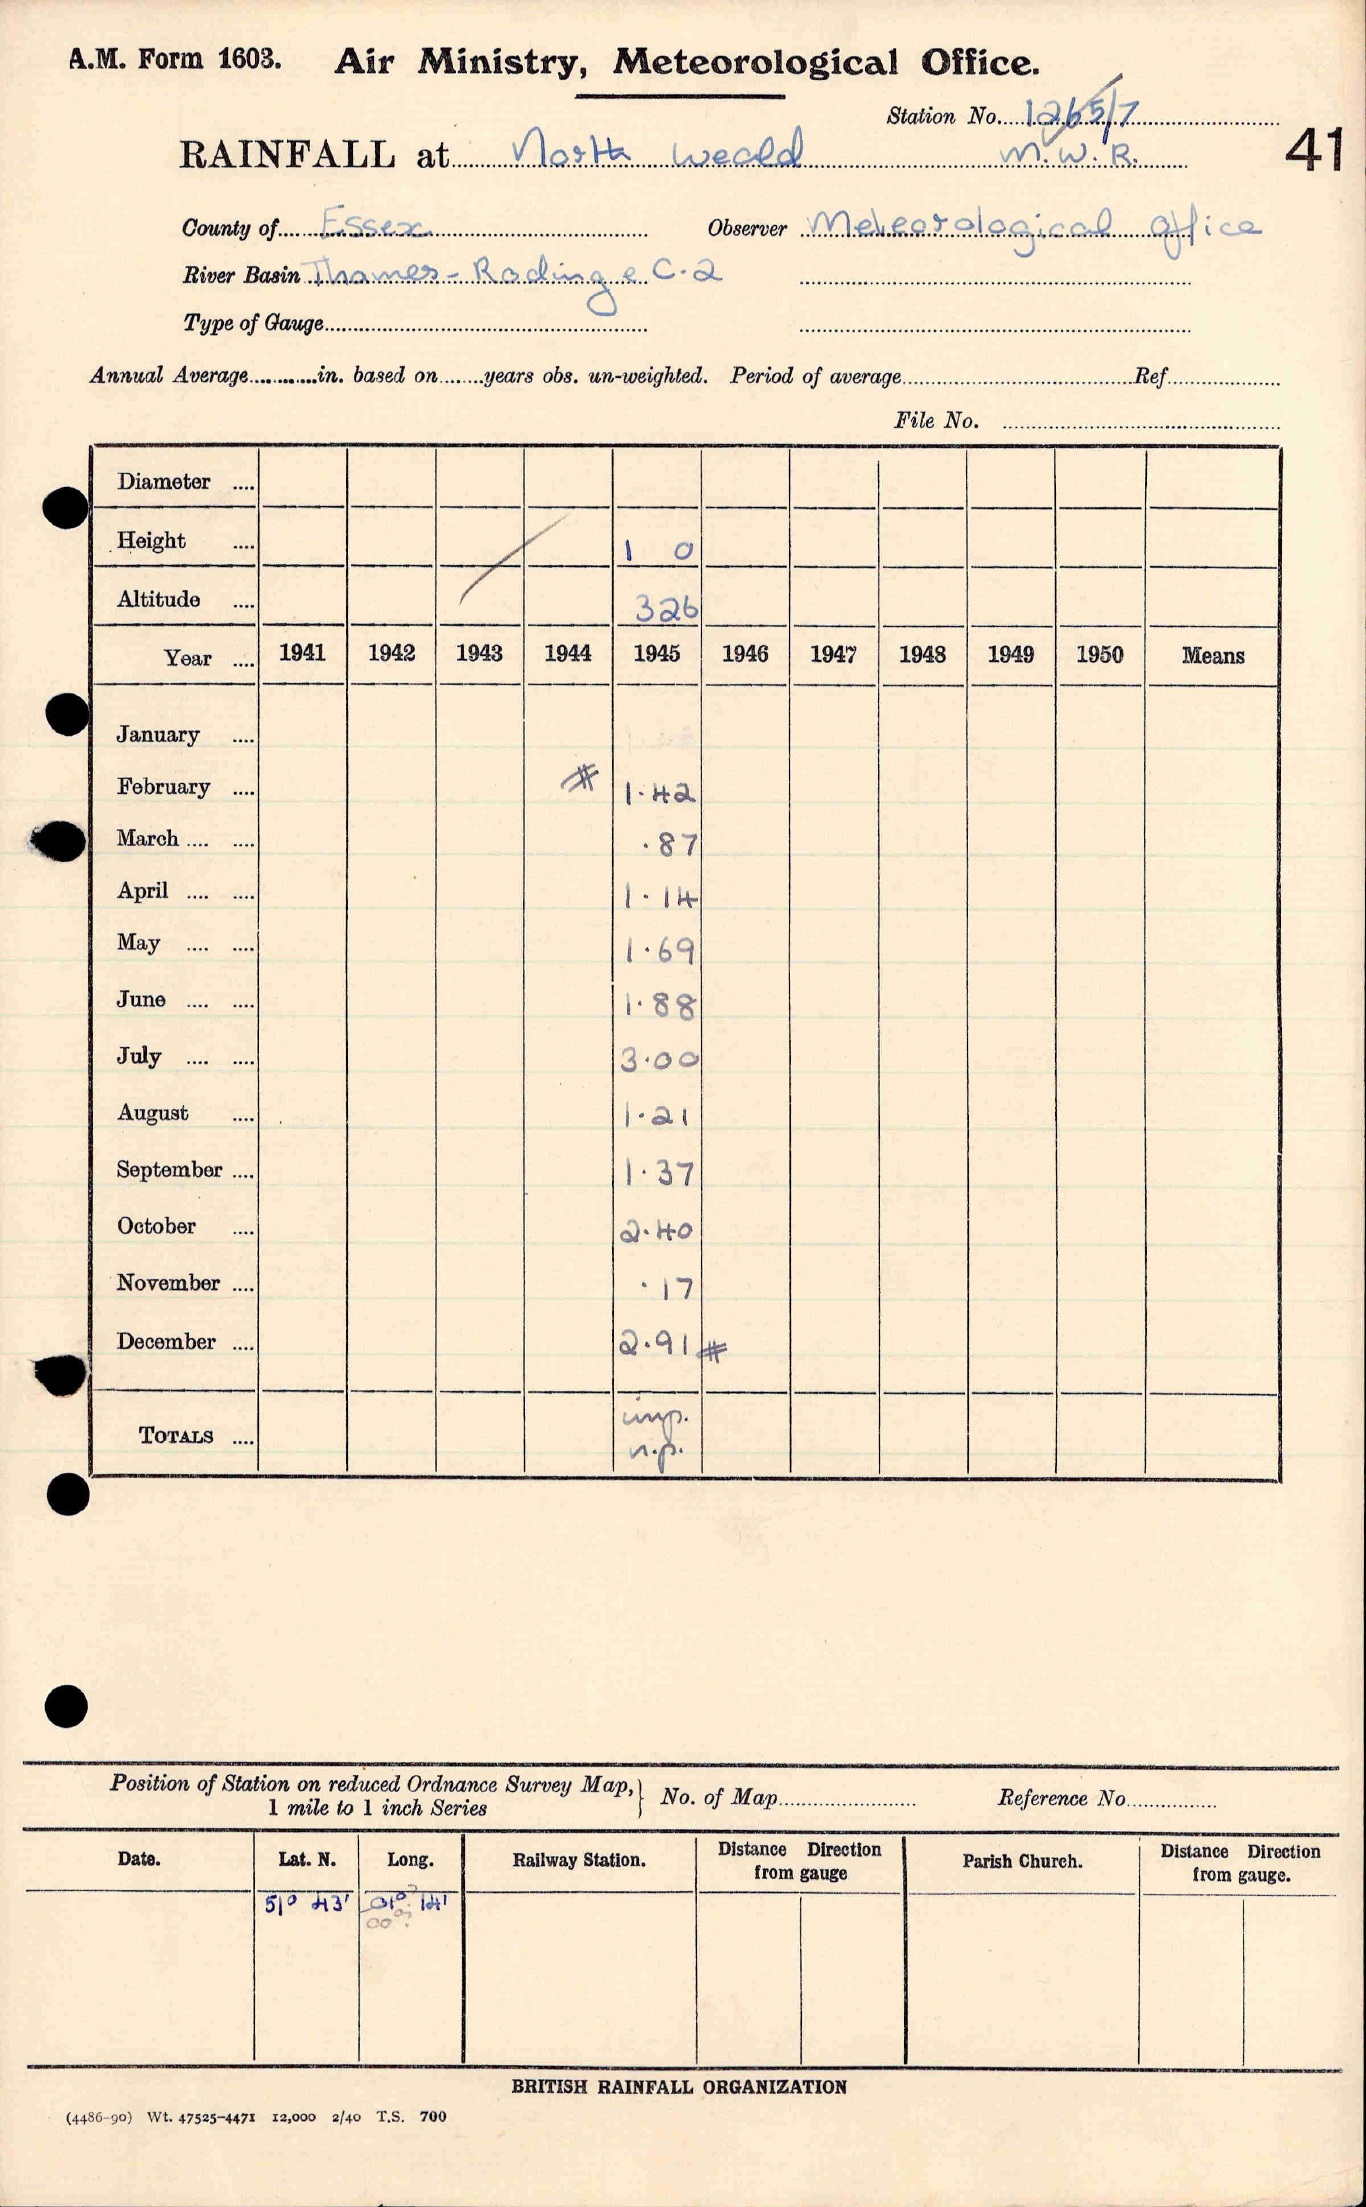 A.M. Form 1603. Air Ministry, Meteorological Office.
Station No. 1265/7
RAINFALL at North Weald M.W.R. 41
County of Essex Observer Meteorological Office
River Basin Thames - Roding e C.2
Type of Gauge
Annual Average in. based on years obs. un-weighted. Period of average Ref.
File No.
Diameter ....
Height .... 1 0
Altitude .... 326
Year .... 1941 1942 1943 1944 1945 1946 1947 1948 1949 1950 Means
January ....
February .... # 1.42
March .... .... .87
April .... .... 1.14
May .... .... 1.69
June .... .... 1.88
July .... .... 3.00
August .... 1.21
September .... 1.37
October .... 2.40
November .... .17
December .... 2.91 #
TOTALS .... imp.
n.p.
Position of Station on reduced Ordnance Survey Map, } No. of Map Reference No.
1 mile to 1 inch Series
Date. Lat. N. Long. Railway Station. Distance Direction from gauge Parish Church. Distance Direction from gauge.
51° 43' 01° 14'
00°
BRITISH RAINFALL ORGANIZATION
(4486-90) Wt. 47525-4471 12,000 2/40 T.S. 700